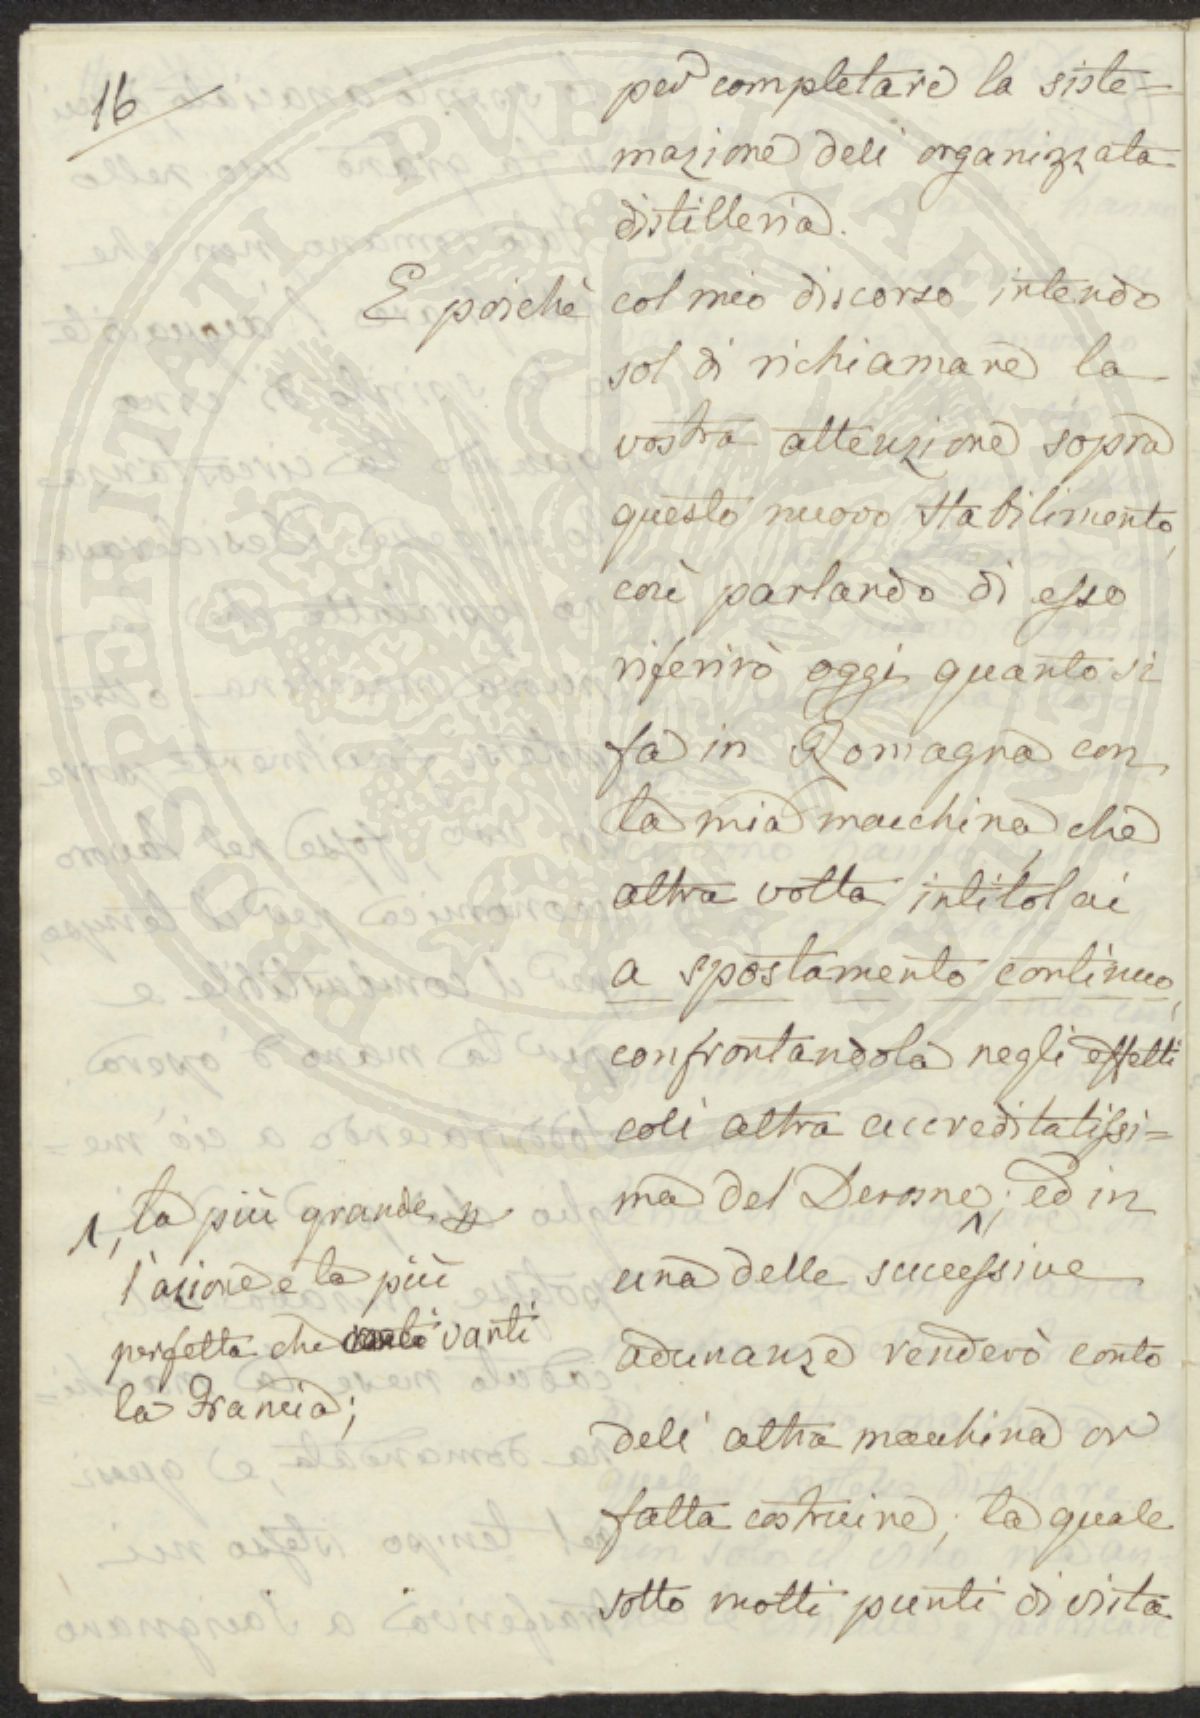 16
per completare la siste=
mazione dell' organizzata
distilleria.
E poichè col mio discorso intendo
sol di richiamare la
vostra attenzione sopra
questo nuovo stabilimento,
così parlando di esso
riferirò oggi quanto si
fa in Romagna con
la mia macchina, che
altra volta intitolai
a spostamento continuo,
confrontandola negli effetti
coll' altra accreditatissi=
ma del Derosne; ed in
una delle successive
adunanze renderò conto
dell' altra macchina or
fatta costruire, la quale
sotto molti punti di vista
1, la più grande p
l'azione e la più
perfetta che vanti
la Francia;
PROSPERITATI PUBLICAE AUGENDAE